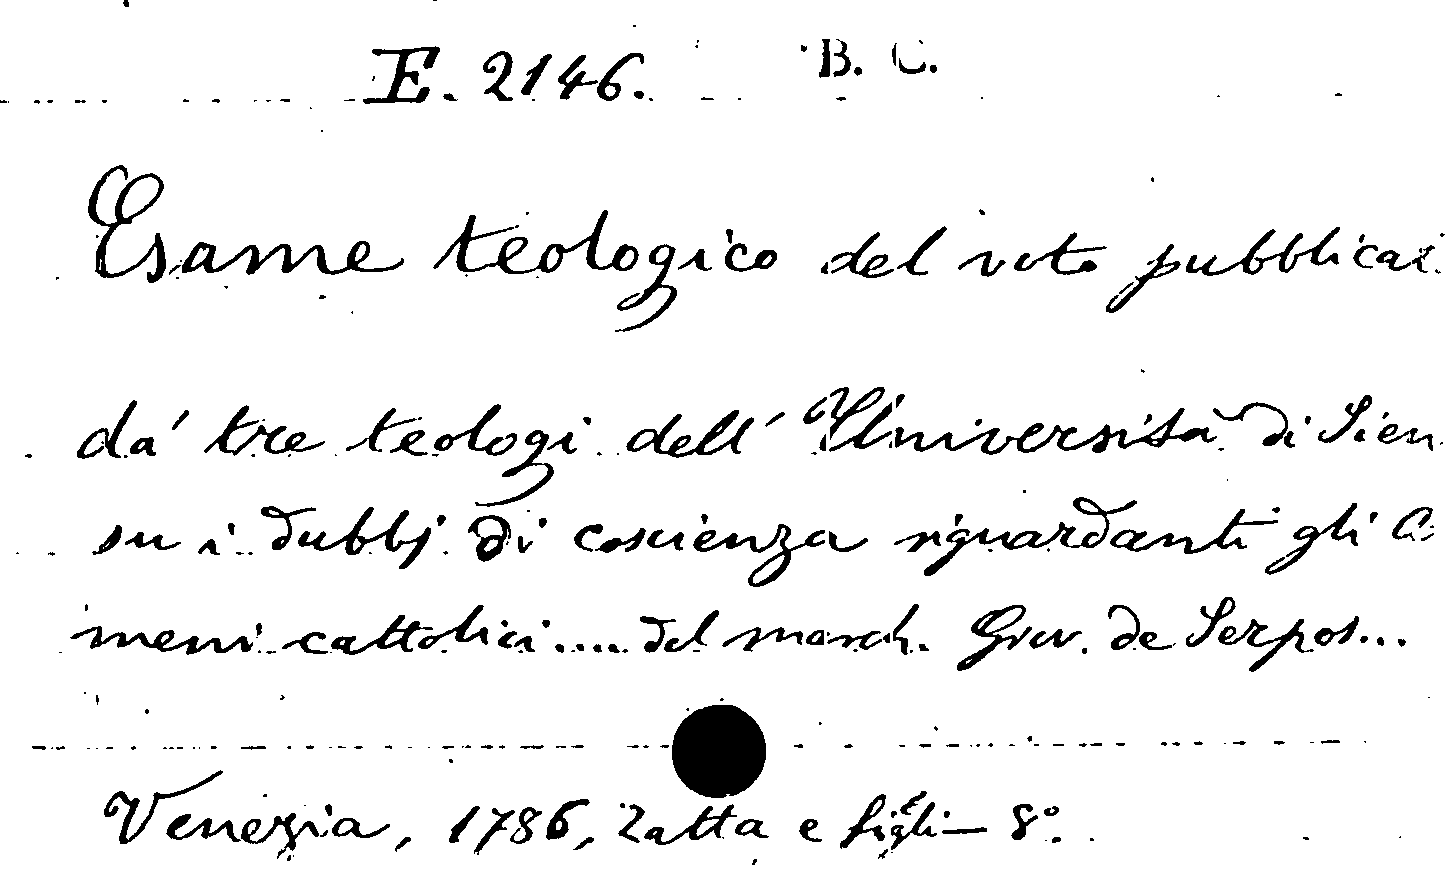 E. 2146. B. C.
Esame teologico del voto pubblicat
da' tre teologi dell' Università di Sien
su i dubbj di coscienza riguardanti gli
meni cattolici.... del march. Giov. de Serpos...
Venezia, 1786, Zatta e figli - 8°.